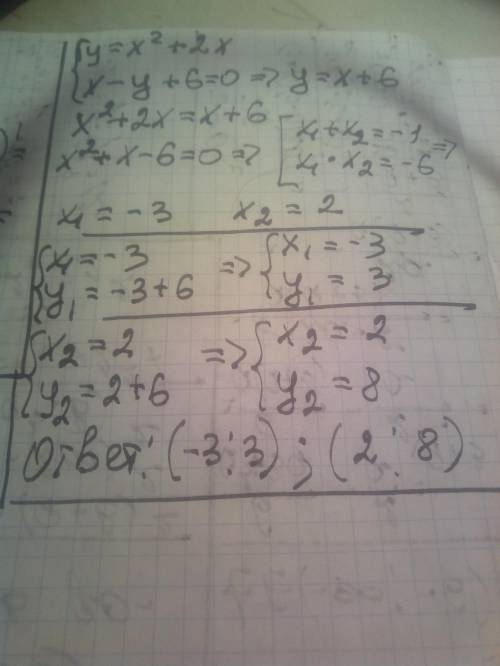 { y = x² + 2x
{ x - y + 6 = 0 => y = x + 6
x² + 2x = x + 6
x² + x - 6 = 0 => [ x₁ + x₂ = -1 =>
[ x₁ · x₂ = -6
x₁ = -3 x₂ = 2
{ x₁ = -3 => { x₁ = -3
{ y₁ = -3 + 6 { y₁ = 3
{ x₂ = 2 => { x₂ = 2
{ y₂ = 2 + 6 { y₂ = 8
Ответ: (-3; 3) ; (2 ; 8)